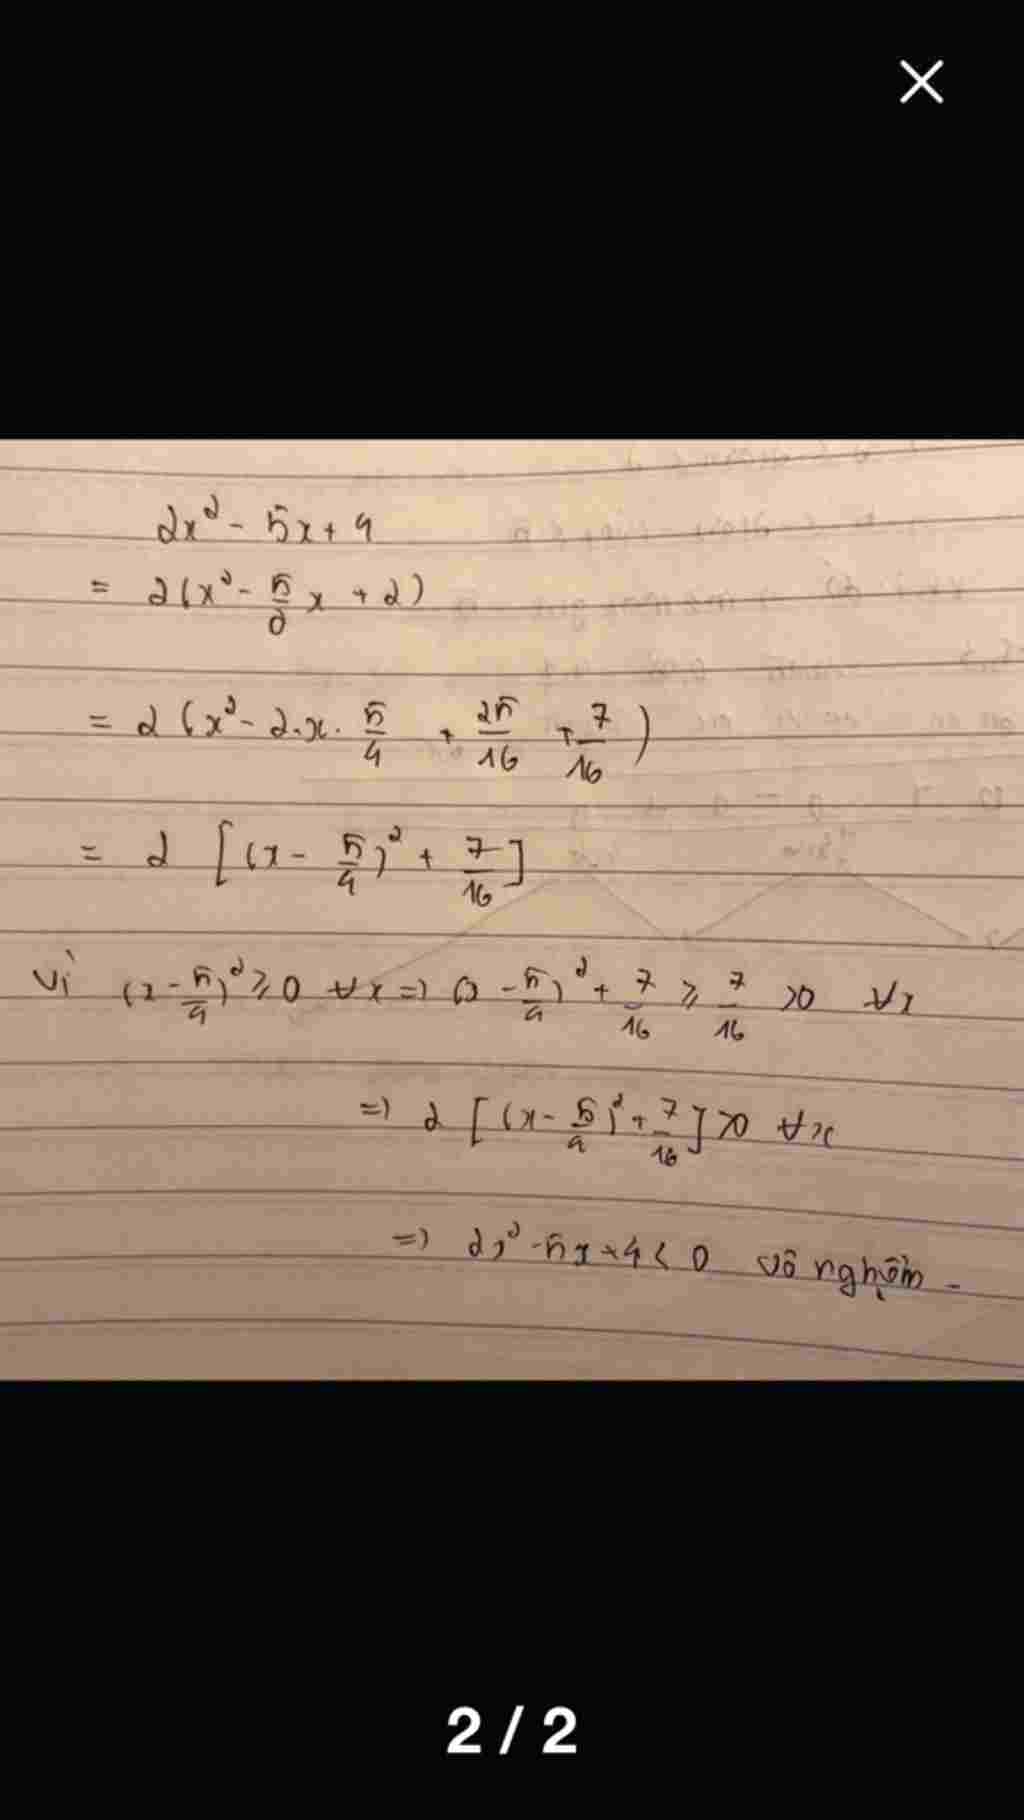 2x² - 5x + 4
= 2(x² - 5/2 x + 2)
= 2 (x² - 2.x. 5/4 + 25/16 + 7/16)
= 2 [(x - 5/4)² + 7/16]
vì (x - 5/4)² ≥ 0 ∀x => (x - 5/4)² + 7/16 ≥ 7/16 >0 ∀x
=> 2 [(x - 5/4)² + 7/16] >0 ∀x
=> 2x² - 5x + 4 < 0 vô nghiệm -
2 / 2